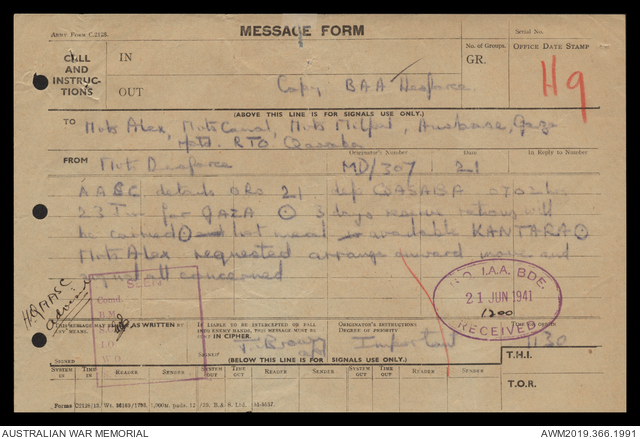 ARMY FORM C.2128.
MESSAGE FORM
Serial No.
CALL AND INSTRUCTIONS
IN
OUT
No. of Groups.
GR.
OFFICE DATE STAMP
H9
Copy BAA
(ABOVE THIS LINE IS FOR SIGNALS USE ONLY.)
TO Mots Alex, Mots Canal, Mots Milpal, Ausbase, Gaza
RTO Qasaba
FROM
Originator's Number
Date
In Reply to Number
Mots Desforce MD/307 21
AASC details ORs 21 dep QASABA 0702 hrs
23 Jun for GAZA 3 days rations will
be carried hot meal available KANTARA
Mots Alex requested arrange onward move and
signal all concerned
HQ AASC
SEEN
Comd.
B.M.
I.O.
W.O.
H.Q. I.A.A. BDE.
21 JUN 1941
1200
RECEIVED
THIS MESSAGE MAY BE SENT AS WRITTEN BY ANY MEANS.
IF LIABLE TO BE INTERCEPTED OR FALL INTO ENEMY HANDS, THIS MESSAGE MUST BE SENT IN CIPHER.
ORIGINATOR'S INSTRUCTIONS
DEGREE OF PRIORITY
Important
1130
SIGNED
SIGNED
(BELOW THIS LINE IS FOR SIGNALS USE ONLY.)
T.H.I.
SYSTEM IN
TIME IN
READER
SENDER
SYSTEM OUT
TIME OUT
READER
SENDER
SYSTEM OUT
TIME OUT
READER
SENDER
T.O.R.
AUSTRALIAN WAR MEMORIAL
AWM2019.366.1991